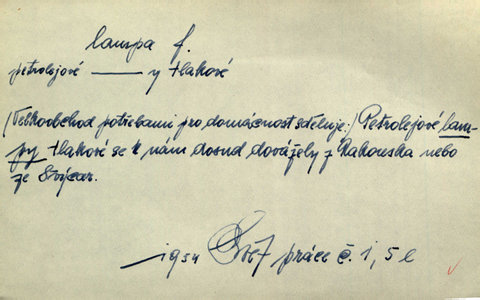 lampa f.
petrolejové —— y tlakové
(Velkoobchod potřebami pro domácnost sděluje:) Petrolejové lam-
py tlakové se k nám dosud dovážely z Rakouska nebo
ze Švýcar.
1954 Svět práce č. 1, 5 e